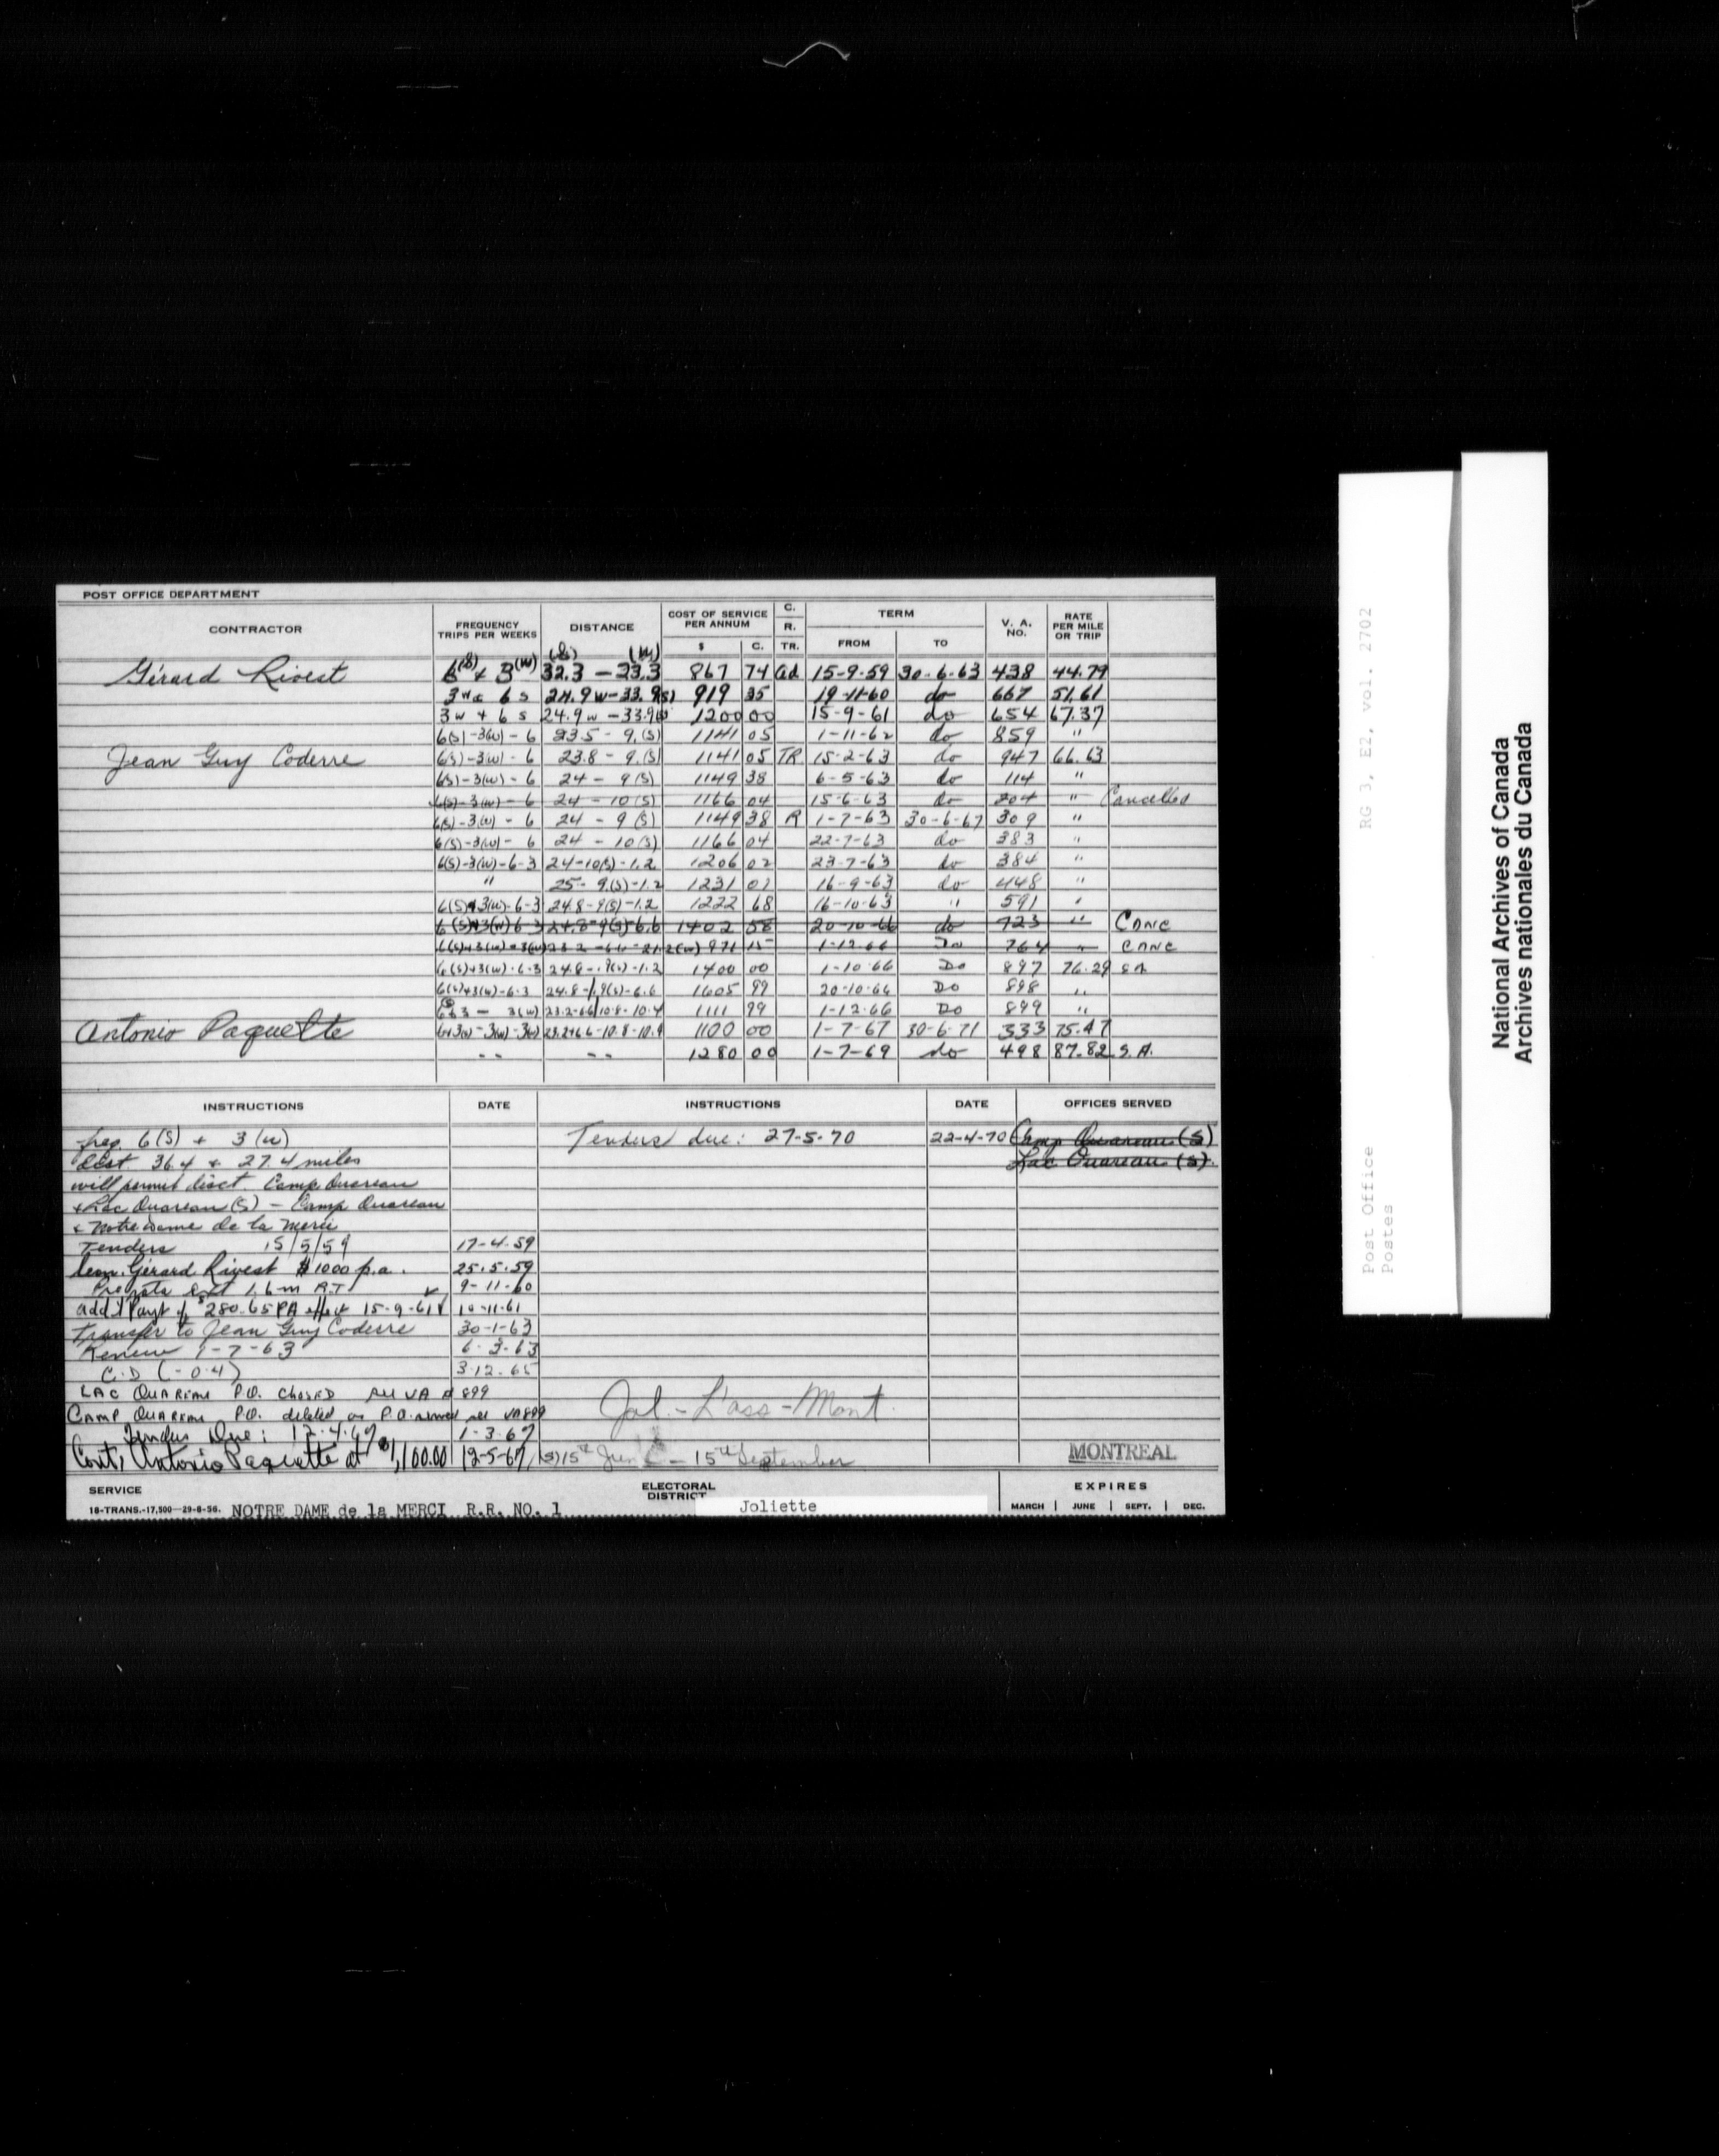 POST OFFICE DEPARTMENT
CONTRACTOR FREQUENCY TRIPS PER WEEKS DISTANCE COST OF SERVICE PER ANNUM $ C. C. R. TR. TERM FROM TO V. A. NO. RATE PER MILE OR TRIP
(S) (W)
Gérard Rivest 6(S) + 3(W) 32.3 – 23.3 867 74 ad 15-9-59 30-6-63 438 44.79
3 w & 6 s 24.9 w – 33.9(s) 919 35 19-11-60 do 667 51.61
3 w + 6 s 24.9 w – 33.9 1200 00 15-9-61 do 654 67.37
6(s) -3(w) - 6 23.5 - 9.(S) 1141 05 1-11-62 do 859 "
Jean Guy Coderre 6(s) -3(w) - 6 23.8 - 9.(S) 1141 05 TR 15-2-63 do 947 66.63
6(s) -3(w) - 6 24 - 9(S) 1149 38 6-5-63 do 114 "
6(s) -3(w) - 6 24 - 10(S) 1166 04 15-6-63 do 204 " Cancelled
6(s) -3(w) - 6 24 - 9(S) 1149 38 R 1-7-63 30-6-67 309 "
6(s) -3(w) - 6 24 - 10(S) 1166 04 22-7-63 do 383 "
6(s) -3(w) -6-3 24-10(S)-1.2 1206 02 23-7-63 do 384 "
" 25- 9.(S)-1.2 1231 02 16-9-63 do 448 "
6(S)+3(w)-6-3 24.8-9(S)-1.2 1222 68 16-10-63 " 591 "
6(S)+3(w)-6-3 24.8-9(S)-6.6 1402 58 20-10-66 do 723 " CANC
971 15 1-12-66 Do 764 " CANC
6(s)+3(w)-6-3 24.8-.9(s)-1.2 1400 00 1-10-66 Do 897 76.29 SA
6(s)+3(w)-6-3 24.8-1.9(s)-6.6 1605 99 20-10-66 Do 898 "
3(w) 23.2-6.6/10.8-10.4 1111 99 1-12-66 Do 899 "
Antonio Paquette 6+3(w)-3(w)-3(w) 23.2+6.6-10.8-10.4 1100 00 1-7-67 30-6-71 333 75.47
" " 1280 00 1-7-69 do 498 87.82 S.A.
INSTRUCTIONS DATE INSTRUCTIONS DATE OFFICES SERVED
freq. 6(S) + 3(w) Tenders due: 27-5-70 22-4-70 Camp Ouareau (S)
dist. 36.4 & 27.4 miles Lac Ouareau (S).
will permit disct. Camp Ouareau
& Lac Ouareau (S) - Camp Ouareau
& Notre Dame de la Merci
Tenders 15/5/59 17-4-59
Gérard Rivest $1000 p.a. 25-5-59
Prorata ext 1.6 m R.T 9-11-60
add'l Payt of $280.65 PA effect 15-9-61 10-11-61
Transfer to Jean Guy Coderre 30-1-63
Renew 1-7-63 6-3-63
C.D (-0.4) 3-12-65
LAC OUAREAU P.O. CLOSED 899
CAMP OUAREAU P.O. deleted as P.O. served VA899 Jol. - L'ass - Mont.
Tenders Due: 12-4-67 1-3-67
Cont, Antonio Paquette at $1,100.00 12-5-67 (S) 15th June - 15th September MONTREAL
SERVICE ELECTORAL DISTRICT EXPIRES
16-TRANS.-17,500—29-6-56. NOTRE DAME de la MERCI R.R. NO. 1 Joliette MARCH | JUNE | SEPT. | DEC.
RG 3, E2, vol. 2702
Post Office
Postes
National Archives of Canada
Archives nationales du Canada